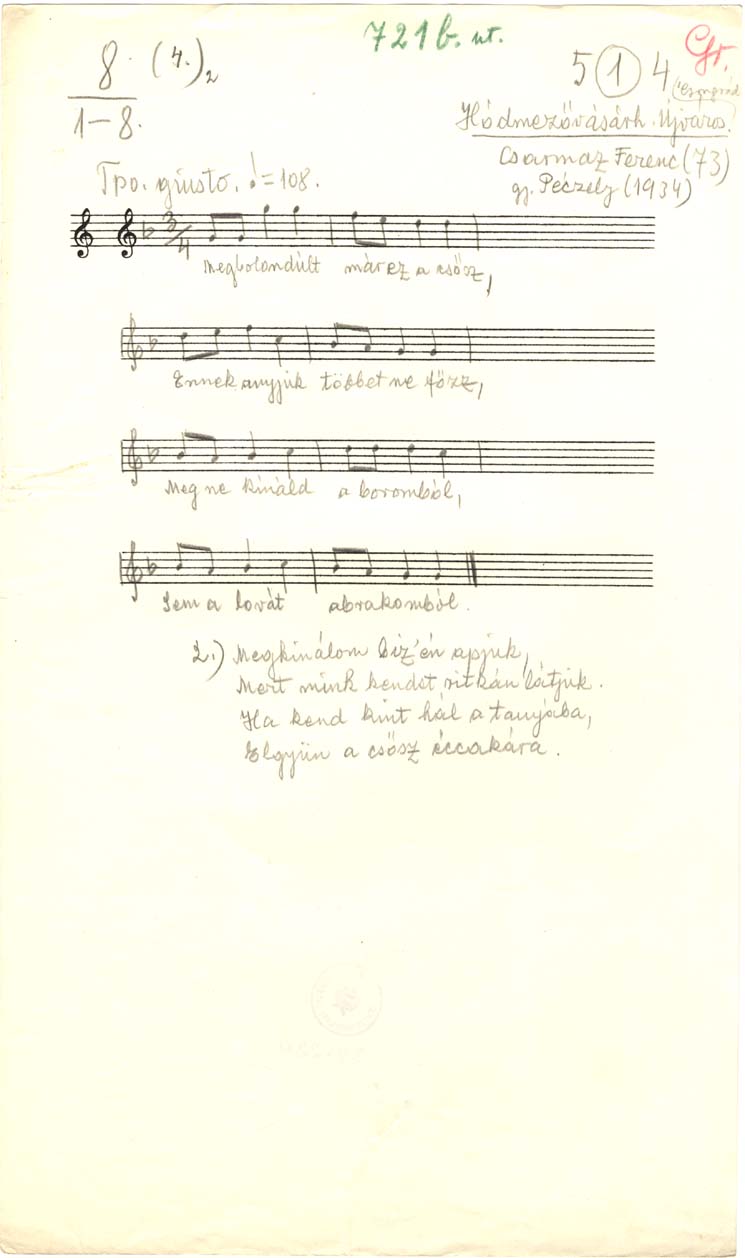 721 b. nt.
8. (4.)2
1-8.
5 (1) 4
Gr.
(Csongrád
Hódmezővásárh. Újváros.
Csarmaz Ferenc (73)
gj. Péczely (1934)
Tpo. giusto. ♩=108.
3/4
Megbolondúlt már ez a csősz,
Ennek anyjuk többet ne főzz,
Meg ne kínáld a boromból,
Sem a lovát abrakomból.
2.) Megkinálom biz' én apjuk,
Mert mink kendet ritkán látjuk.
Ha kend kint hál a tanyába,
Elgyün a csősz éccakára.